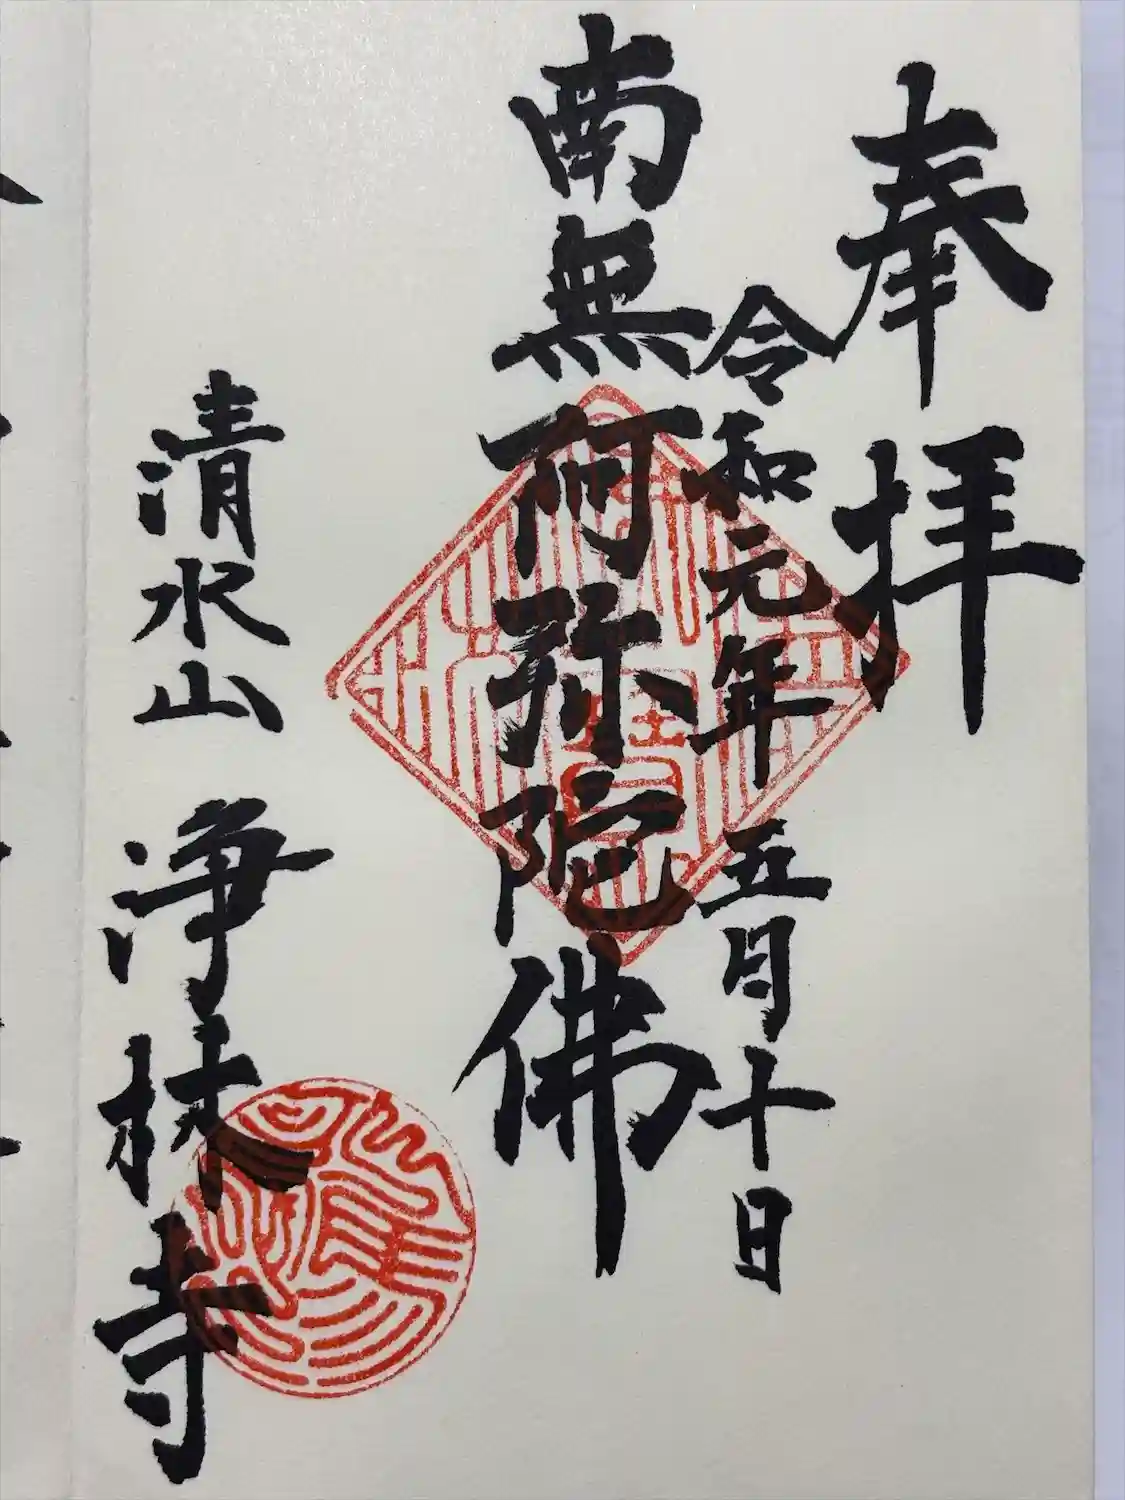 奉拝
令和元年 五月十日
南無阿弥陀佛
清水山 浄林寺